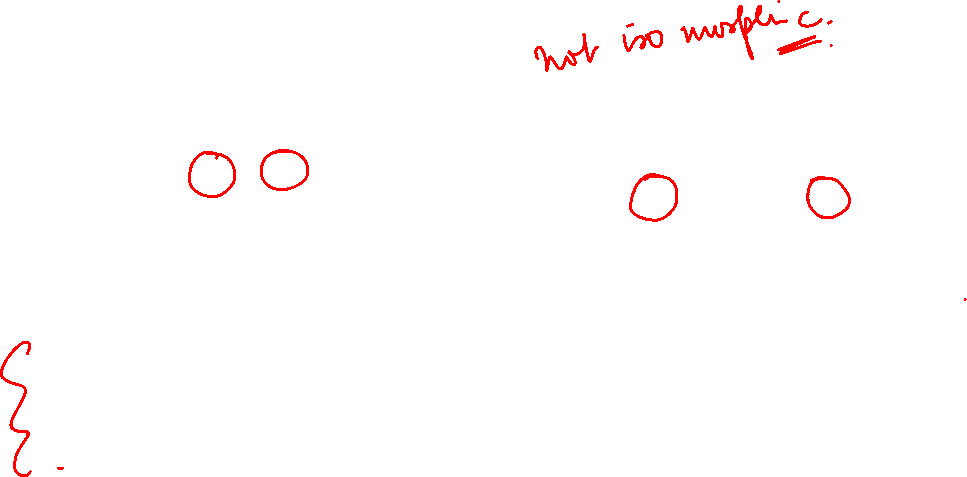 not isomorphic.
{